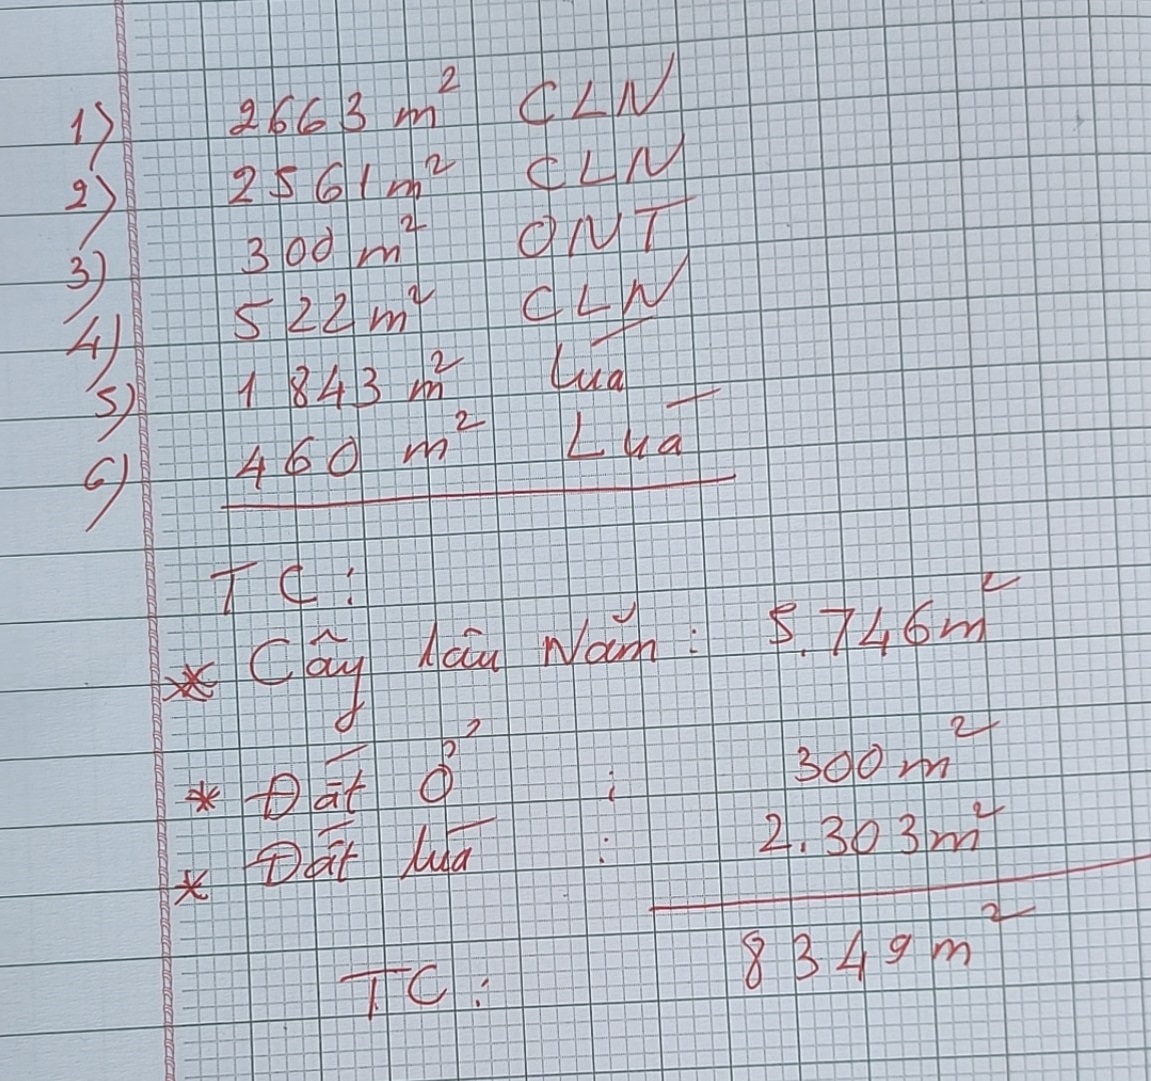 1) 2663 m² CLN
2) 2561 m² CLN
3) 300 m² ONT
4) 522 m² CLN
5) 1843 m² lúa
6) 460 m² Lúa
TC:
* Cây lâu Năm : 5.746m²
* Đất ở : 300 m²
* Đất lúa : 2.303m²
TC: 8349 m²